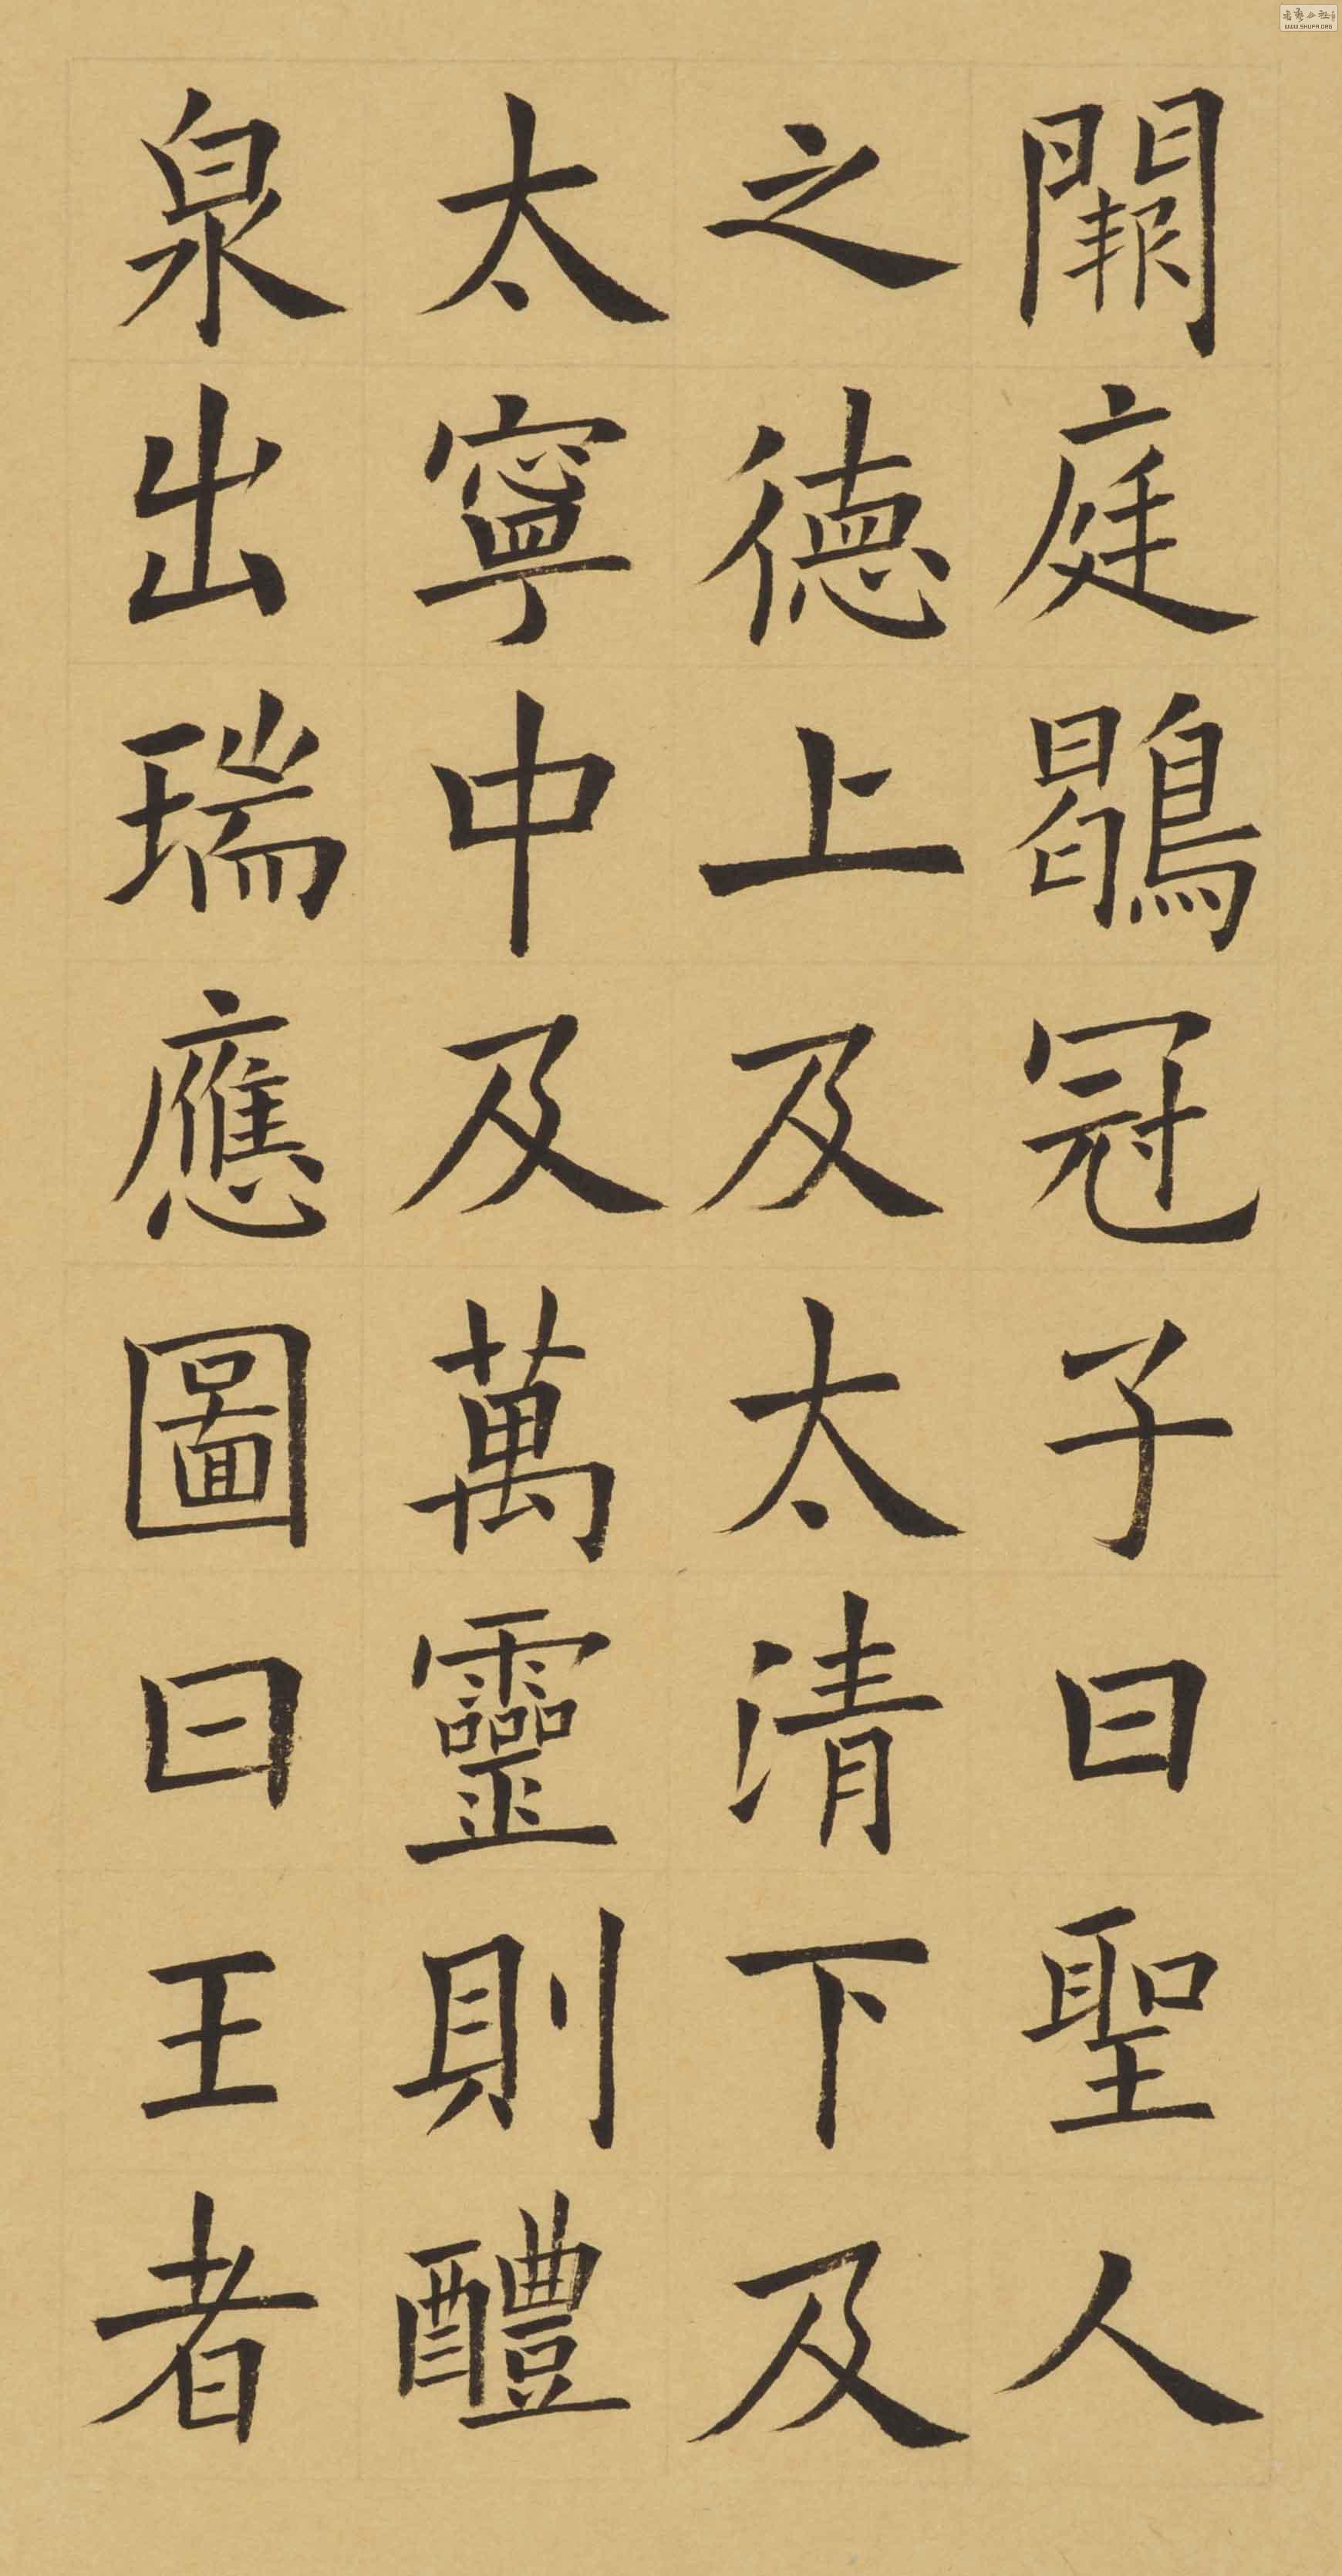 闈庭鶡冠子曰聖人
之德上及太清下及
太寧中及萬靈則醴
泉出瑞應圖曰王者
WWW.SHUFA.ORG